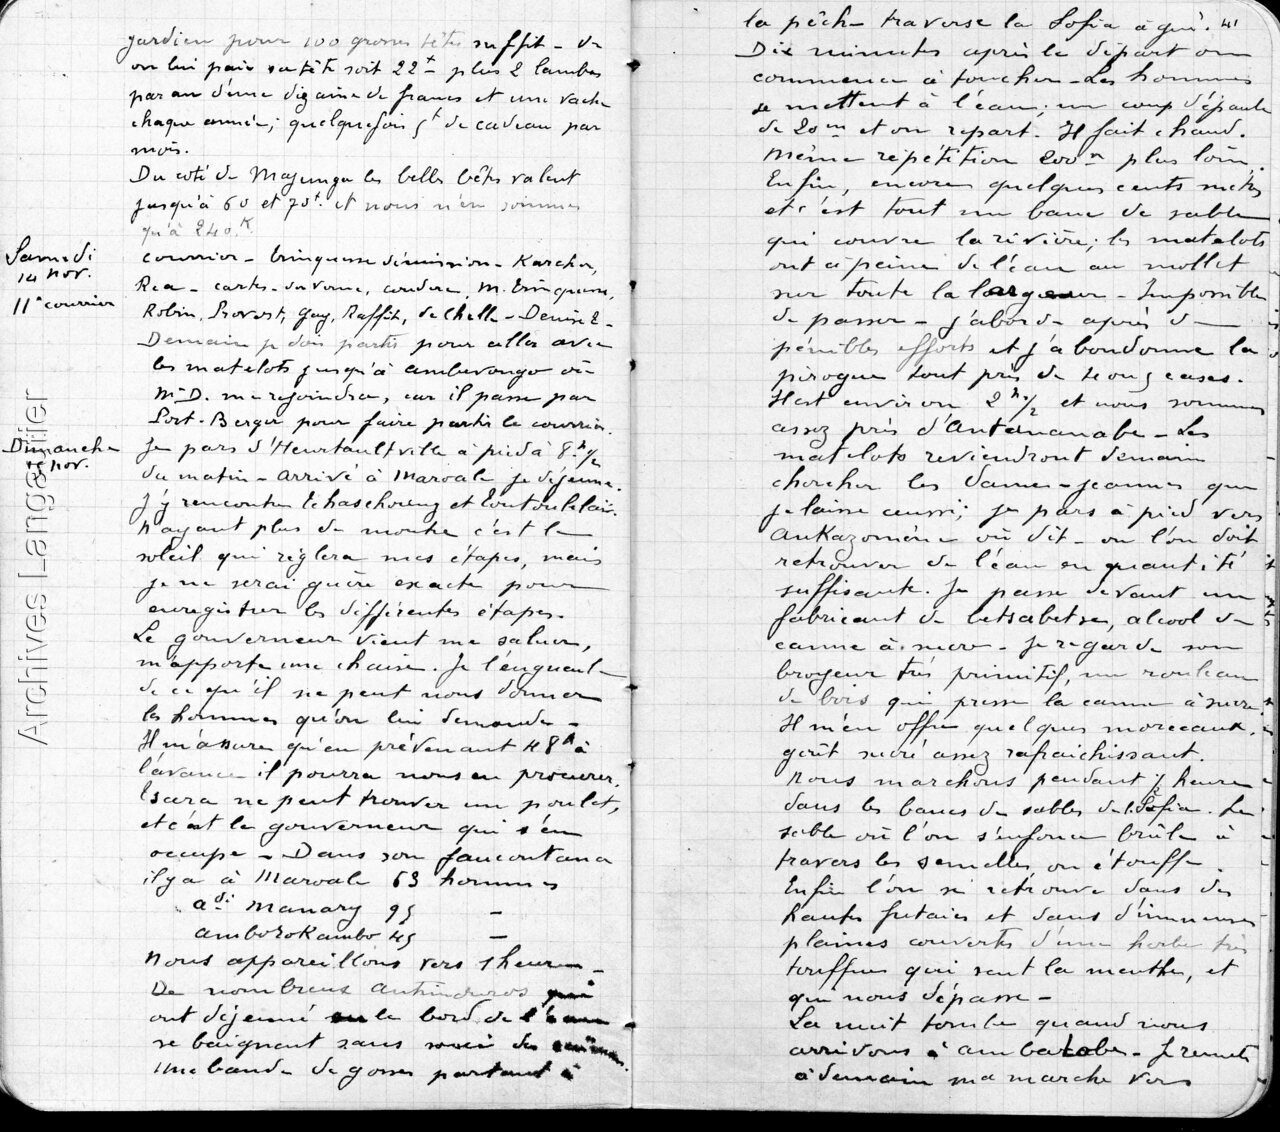 gardien pour 100 grosses têtes suffit - 
on lui paie sa tête soit 22f plus 2 lambas
par an d'une dizaine de francs et une vache
chaque année; quelquefois 5f de cadeau par
mois.
Du coté de Majunga les belles bêtes valent
jusqu'à 60 et 70f. et nous n'en sommes
qu'à 240.K
Samedi
14 nov.
11e courrier
courrier - démission - Karcher,
Rea - cartes - M.
Robin, Provost, Guy, Raffit, de Chelle - Denise 2 -
Demain je dois partir pour aller avec
les matelots jusqu'à ambovongo où
Mr D. me rejoindra, car il passe par
Port-Berger pour faire partir le courrier.
Dimanche
15 nov.
Je pars d'Heurtaultville à pied à 8h 1/2
du matin - arrivé à Marovale je déjeune.
J'y rencontre et
N'ayant plus de montre c'est le
soleil qui règlera mes étapes, mais
je ne serai guère exacte pour
enregistrer les différentes étapes.
Le gouverneur vient me saluer,
m'apporte une chaise. Je l'engueule
de ce qu'il ne peut nous donner
les hommes qu'on lui demande -
Il m'assure qu'en prévenant 48h à
l'avance il pourra nous en procurer.
Isara ne peut trouver un poulet,
et c'est le gouverneur qui s'en
occupe - Dans son faucontana
il y a à Marovale 63 hommes
adi Manary 95 -
amborokambo 45 -
Nous appareillons vers 1 heure -
De nombreux antandroros qui
ont déjeuné sur le bord de l'eau
se baignent sans souci des caïmans.
Une bande de gosses partant à
41
la pêche traverse la Sofia à gué.
Dix minutes après le départ on
commence à toucher - Les hommes
se mettent à l'eau; un coup d'épaule
de 20m et on repart. Il fait chaud.
Même répétition 200m plus loin.
Enfin, encore quelques cents mètres
et c'est tout un banc de sable
qui couvre la rivière; les matelots
ont à peine de l'eau au mollet
sur toute la largeur - Impossible
de passer - j'aborde après de
pénibles efforts et j'abandonne la
pirogue tout près de cases.
Il est environ 2h 1/2 et nous sommes
assez près d'Antananabe - Les
matelots reviendront demain
chercher les dames-jeannes que
je laisse aussi; je pars à pied vers
Ankazomène où dit-on l'on doit
retrouver de l'eau en quantité
suffisante. Je passe devant un
fabricant de betsabetse, alcool de
canne à sucre - Je regarde son
broyeur très primitif, un rouleau
de bois qui presse la canne à sucre.
Il m'en offre quelques morceaux,
goût sucré assez rafraichissant.
Nous marchons pendant 1/2 heure
dans les bancs de sables de la Sofia. Le
sable où l'on s'enfonce brûle à
travers les semelles, on étouffe.
Enfin l'on se retrouve dans des
hautes futaies et dans d'immenses
plaines couvertes d'une herbe très
touffue qui sent la menthe, et
qui nous dépasse -
La nuit tombe quand nous
arrivons à ambatobe - Je remets
à demain ma marche vers
Archives Langanier